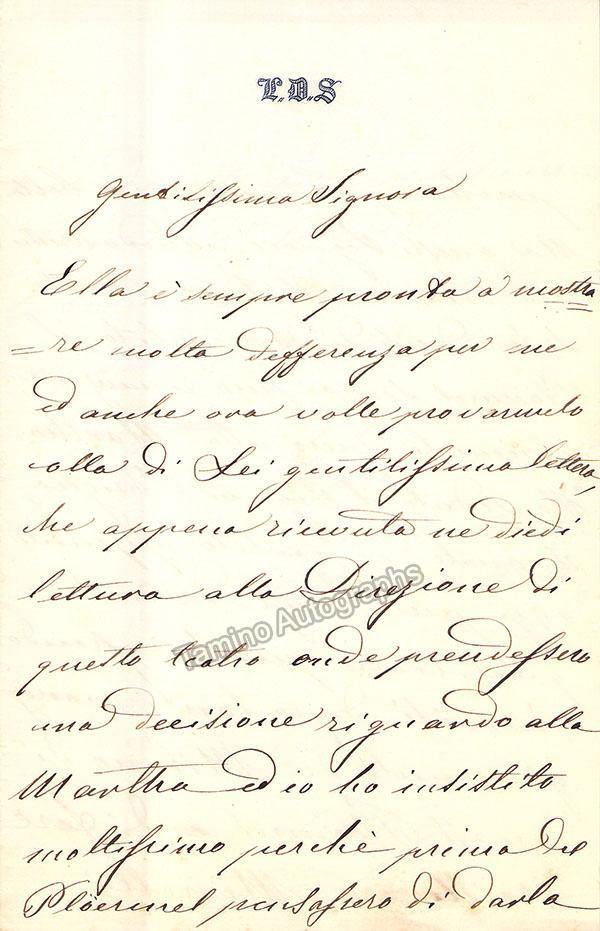 L.D.S
Gentilissima Signora
Ella è sempre pronta a mostra
=re molta defferenza per me
ed anche ora volle provarmelo
colla di Lei gentilissima lettera,
che appena ricevuta ne diedi
lettura alla Direzione di
questo teatro onde prendessero
una decisione riguardo alla
Martha ed io ho insistito
moltissimo perchè prima del
Ploermel pensassero di darla
Tamino Autographs